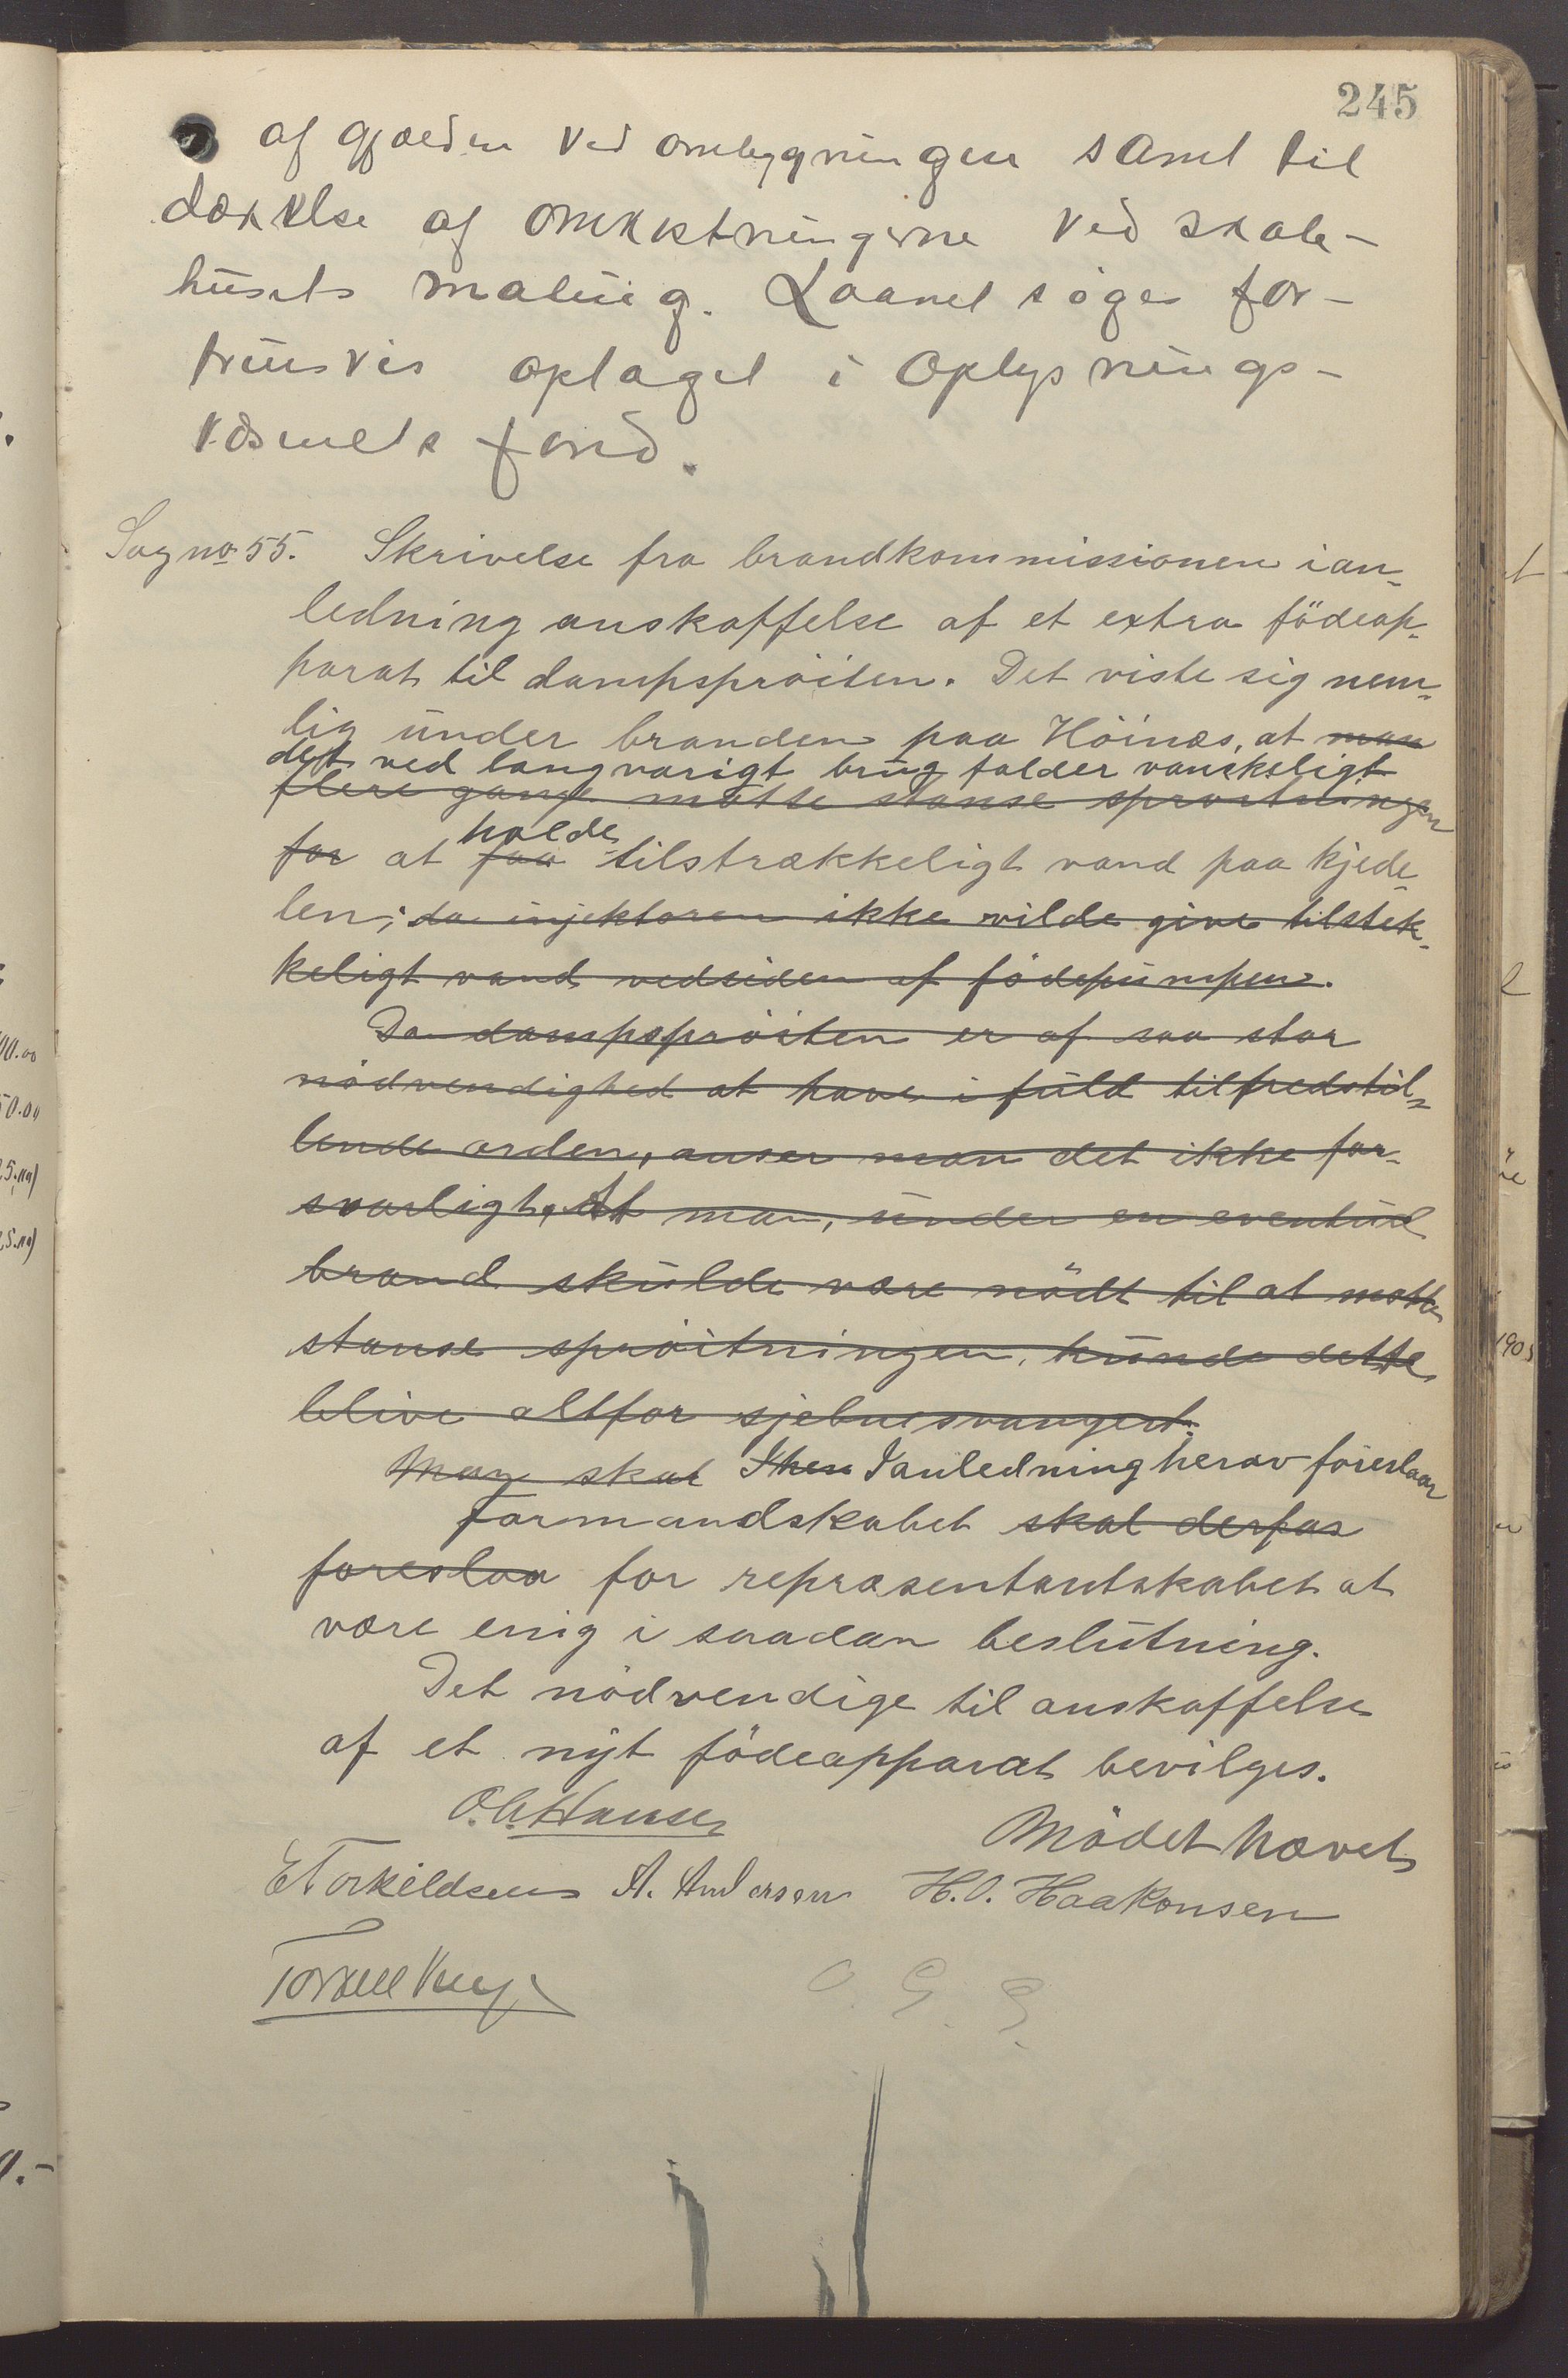 245
af gjælden ved ombygningen samt til
dækkelse af omkostningerne ved skole-
husets maling. Laanet søges for-
trinsvis optaget i Oplysnings-
væsenets fond.
Sag no 55. Skrivelse fra brandkommissionen ian-
ledning anskaffelse af et extra födeap-
parat til dampspröiten. Det viste sig nem-
lig under branden paa Höinæs, at man
det ved langvarigt brug falder vanskeligt
flere gange måtte stanse spröitningen
holde
for at faa tilstrækkeligt vand paa kjede-
len; da injektoren ikke vilde give tilstek-
keligt vand vedsiden af födepumpen.
Da dampspröiten er af saa stor
nödvendighed at have i fuld tilfredstil-
lende orden, anser man det ikke for-
svarligt, at man, under en eventuel
brand skulde være nödt til at måtte
stanse spröitningen, kunde dette
blive altfor sjebnesvangert.
Man skal Ihen Ianledning herav föreslaar
Formandskabet skal derfor
foreslaa for repræsentantskabet at
være enig i saadan beslutning.
Det nödvendige til anskaffelse
af et nyt födeapparat bevilges.
O. A. Hansen
Mödet hævet
E Torkildsen A. Andersen H. O. Haakonsen
O. G. G.